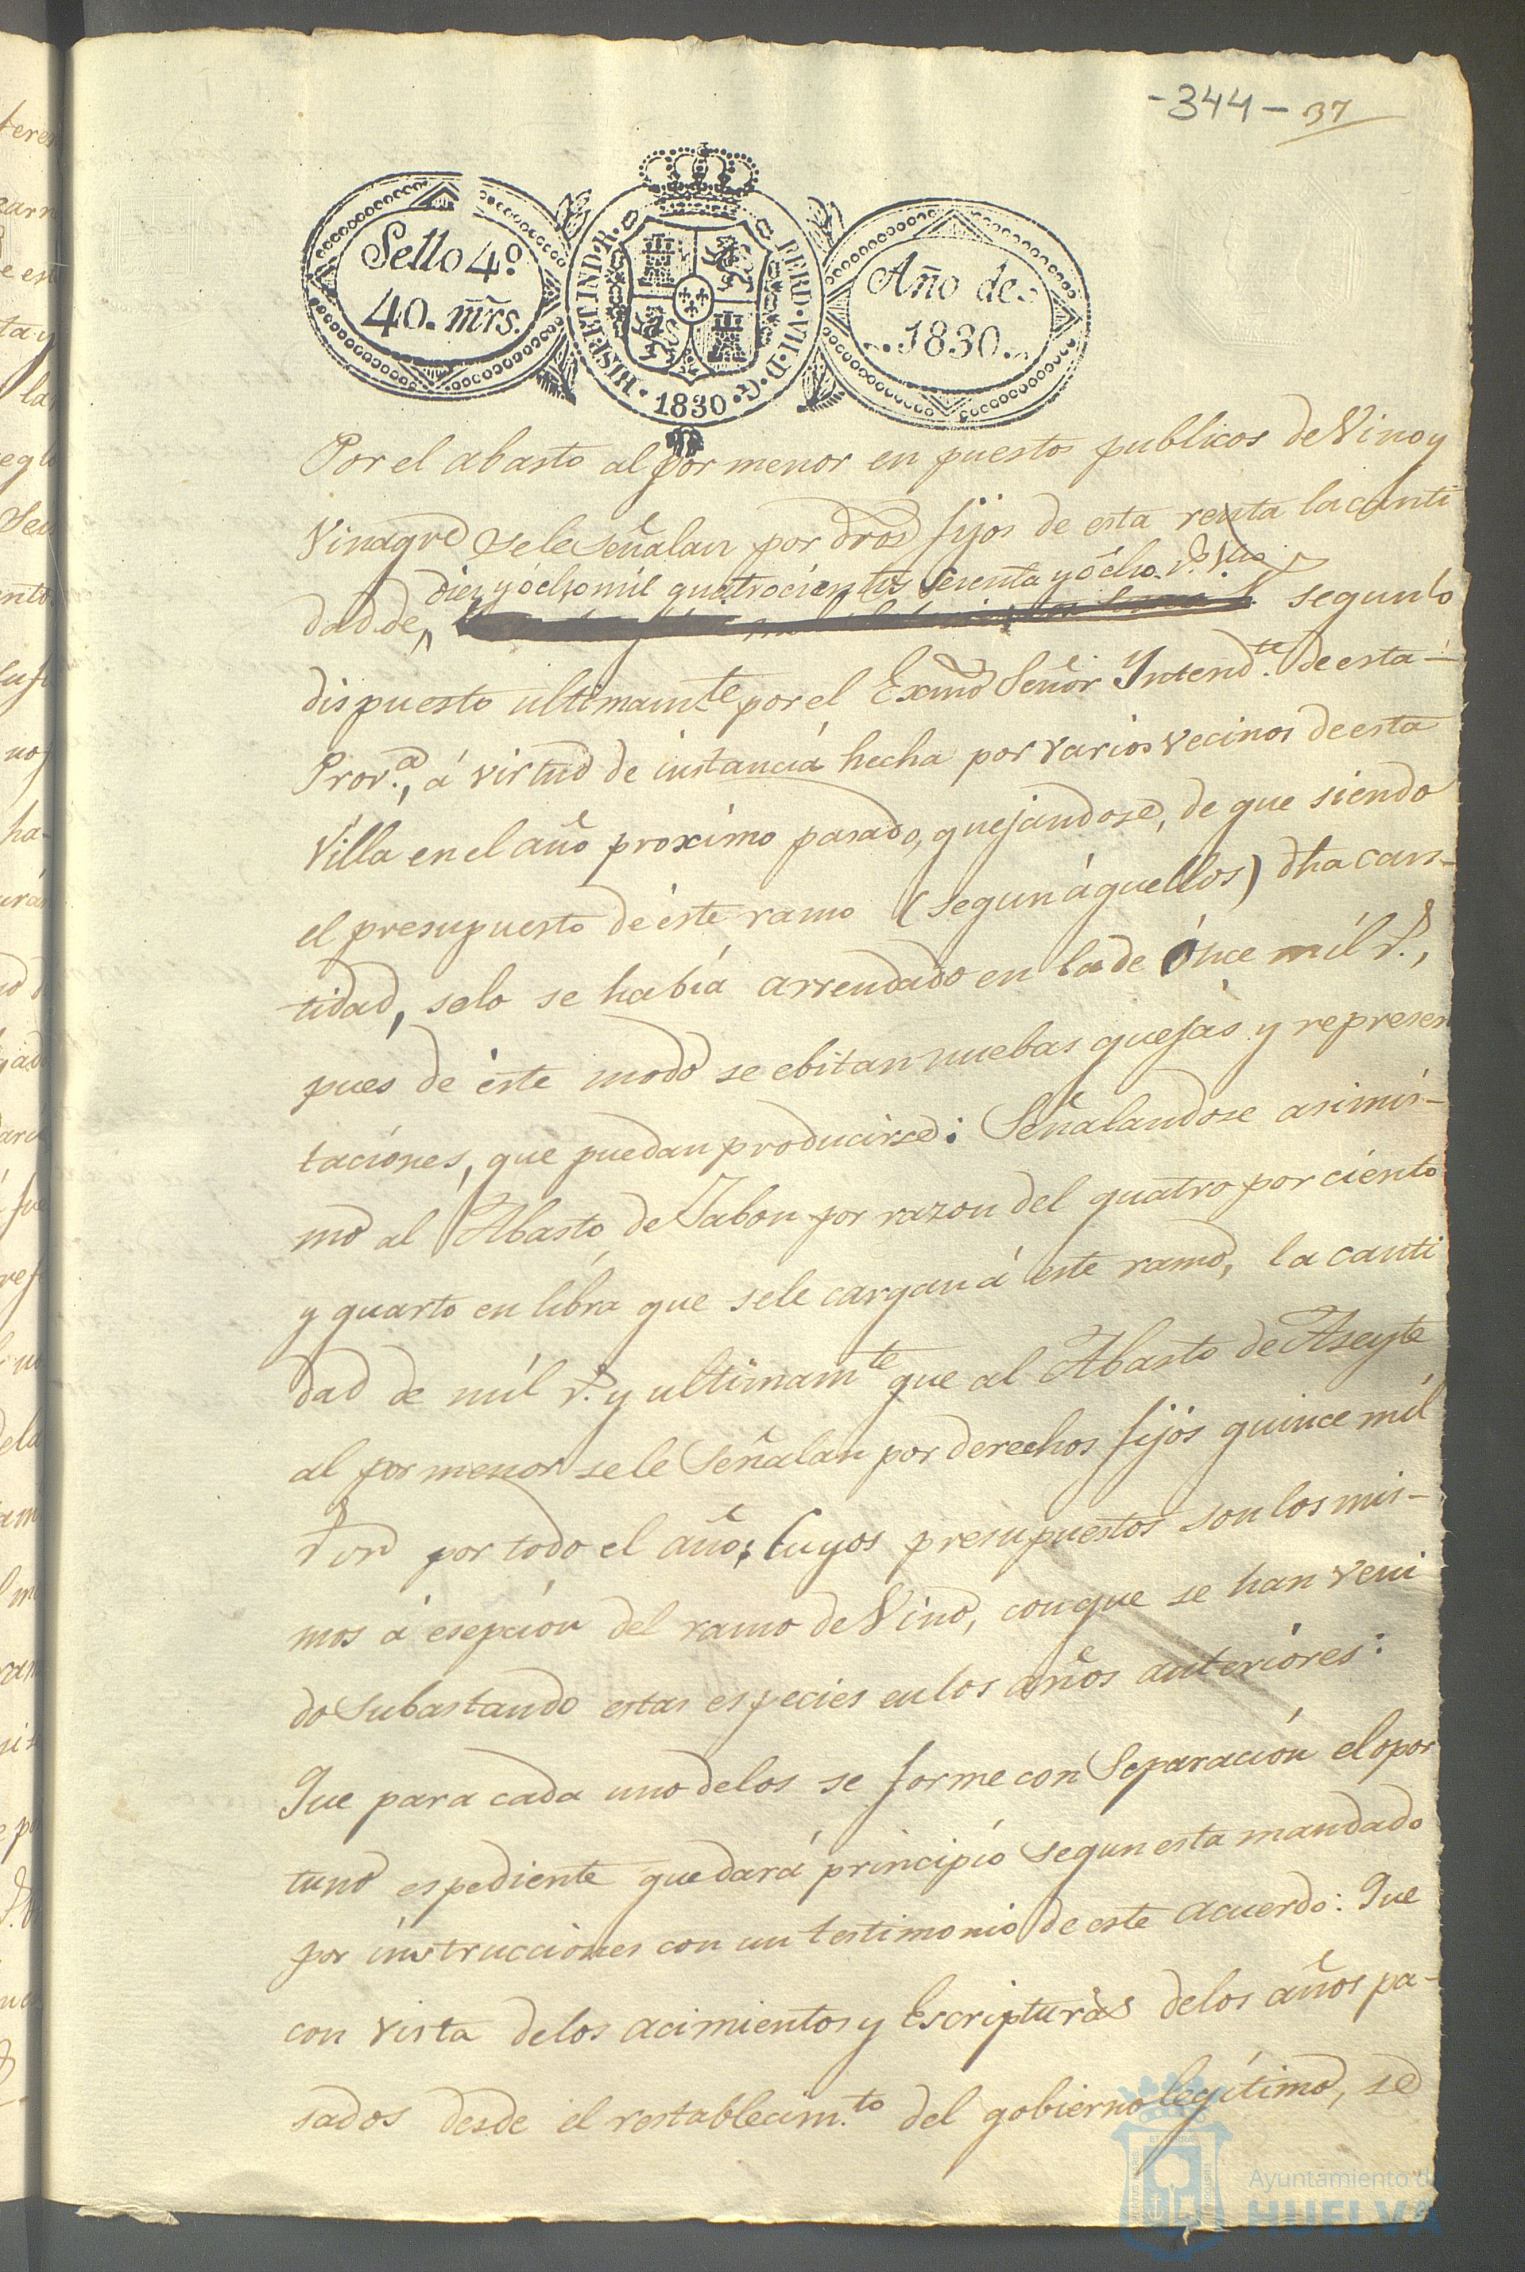 -344- 37
Sello 4º
40. mrs.
HISP. ET IND. R. FERD. VII. D. G.
1830
Año de
1830.
Por el abasto al por menor en puestos publicos de Vino y
Vinagre sele señalan por dros fijos de esta renta la canti
diez y ócho mil quatrocientos setenta y ócho r.s Von
dad de, segun lo
dispuesto ultimam.te por el Exmo Señor Yntend.te de esta-
Prov.a, á virtud de instancia hecha por varios vecinos de esta
Villa en el año proximo pasado, quejandose, de que siendo
el presupuesto de éste ramo (segun áquellos) dha can-
tidad, solo se había arrendado en la de ónce mil r.s,
pues de éste modo se ebitan nuebas quejas y represen
taciónes, que puedan producirse: Señalandose asimis-
mo al Abasto de Jabon por razon del quatro por ciento
y quarto en libra que sele cargan á este ramo, la canti
dad de mil r.s y ultimam.te que al Abasto de Aseyte
al por menor sele señalan por derechos fijos quince mil
r.s von por todo el año; Cuyos presupuestos son los mis-
mos á esepción del ramo de Vino, con que se han veni
do Subastando estas especies en los años anterióres:
Que para cada uno delos se forme con Separación el opor
tuno espediente que dará principio segun esta mandado
por instrucciónes con un testimonio de este acuerdo: Que
con vista delos acimientos y Escripturas delos años pa-
sados desde el restablecim.to del gobierno legítimo, se
Ayuntamiento de
HUELVA